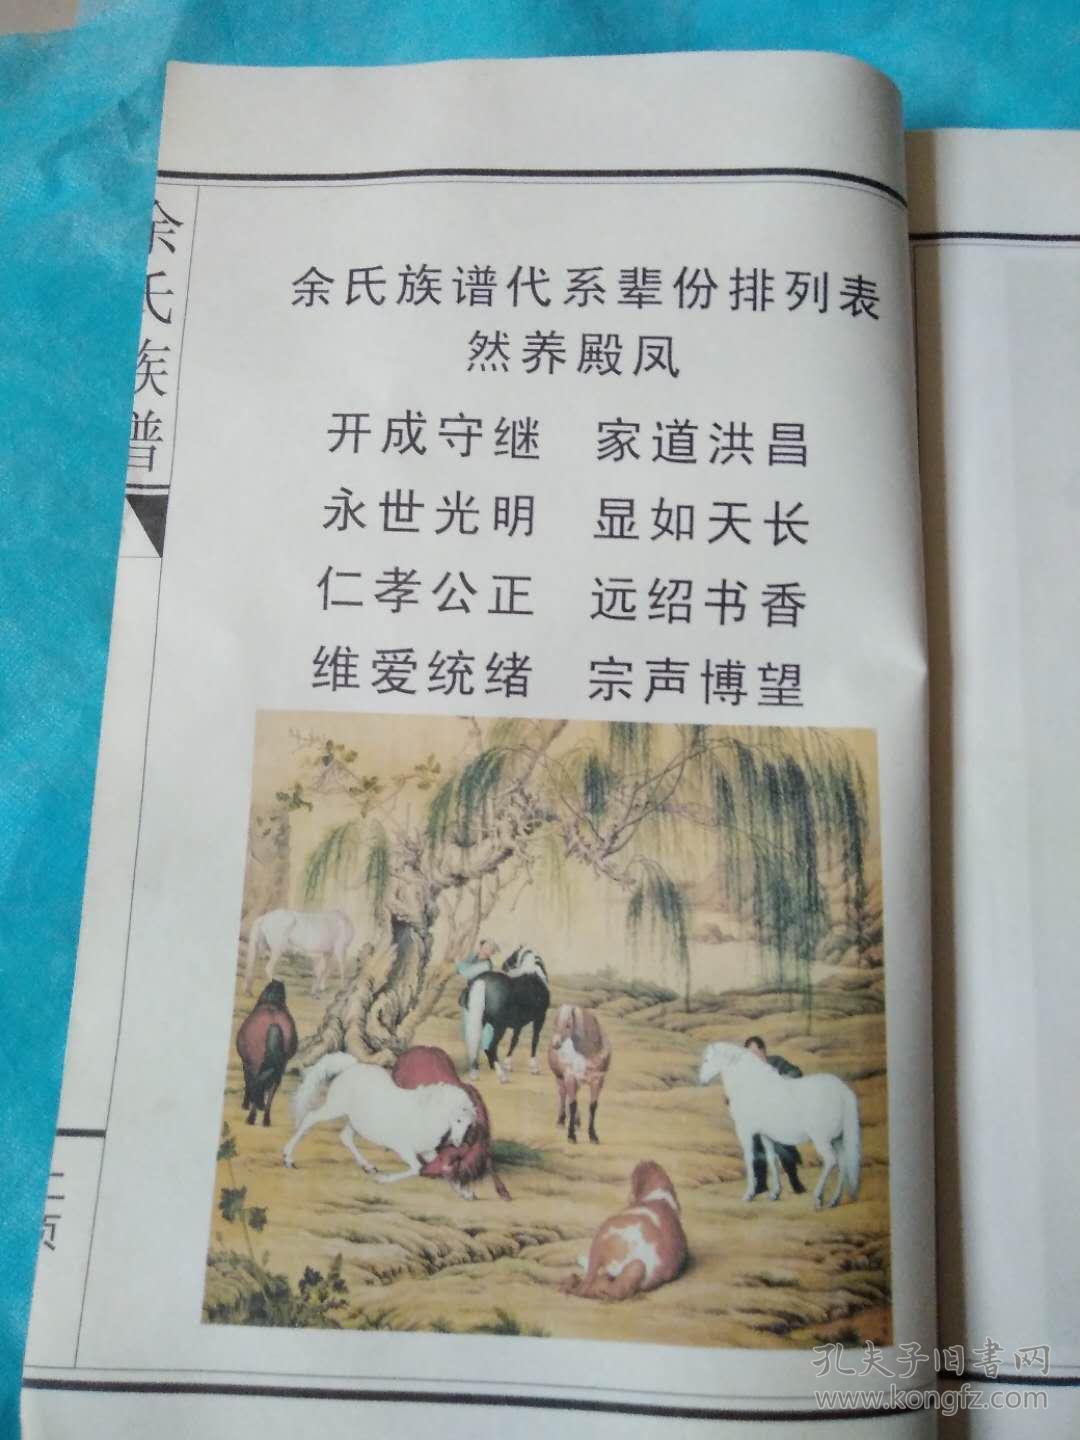 余氏族谱
余氏族谱代系辈份排列表
然养殿凤
开成守继 家道洪昌
永世光明 显如天长
仁孝公正 远绍书香
维爱统绪 宗声博望
孔夫子旧书网
www.kongfz.com